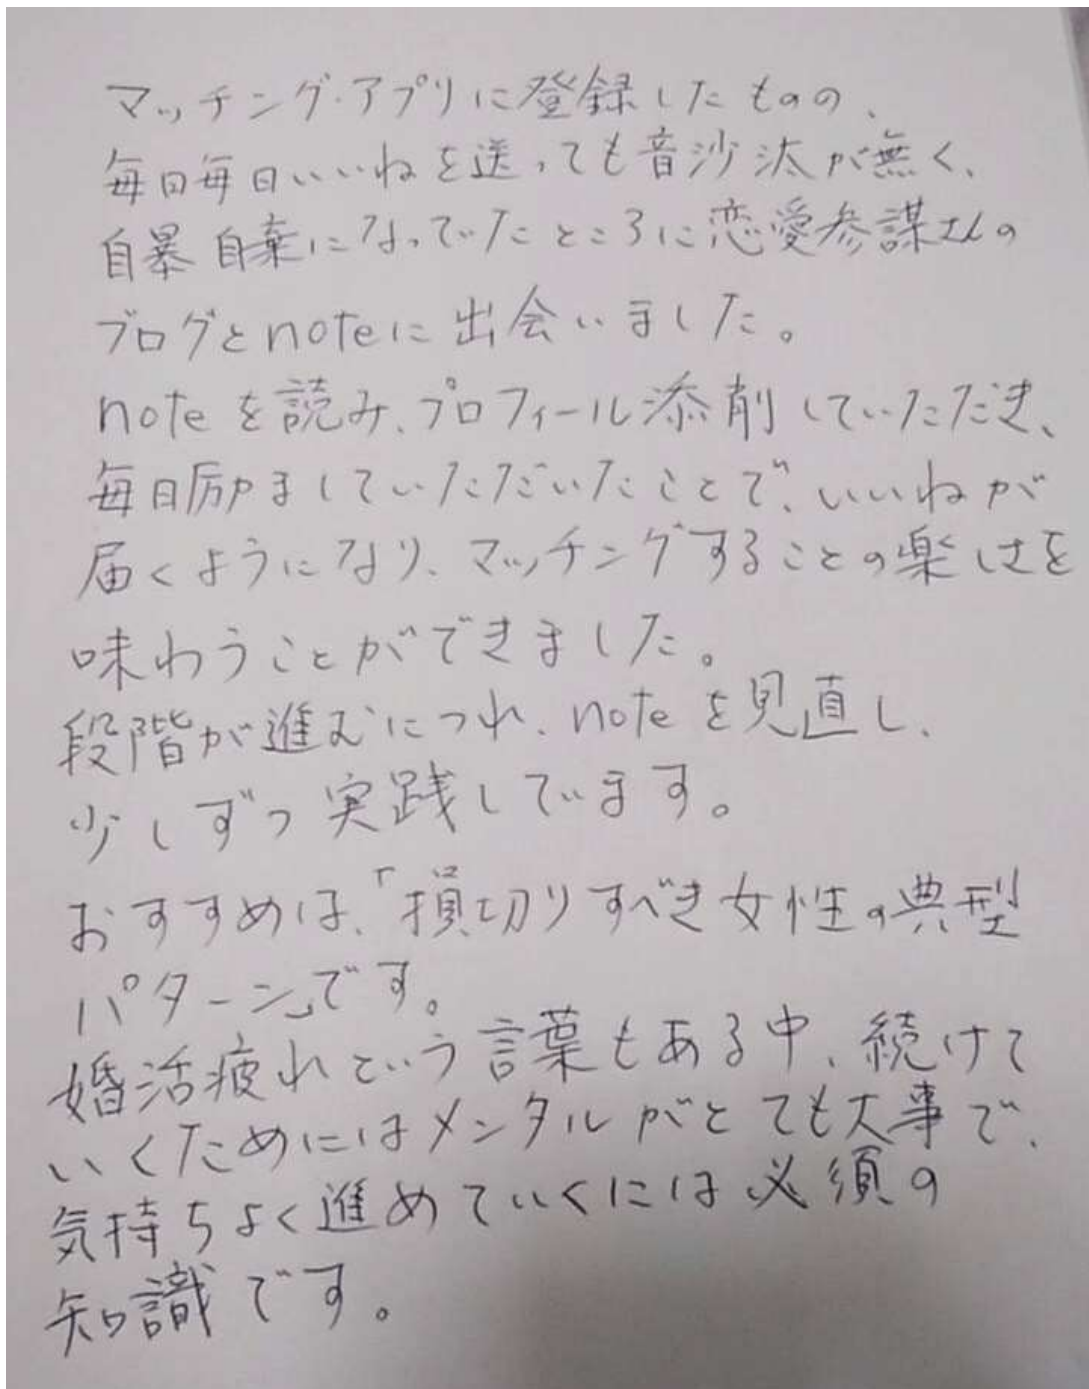 マッチング・アプリに登録したものの、
毎日毎日いいねを送っても音沙汰が無く、
自暴自棄になってたところに恋愛参謀さんの
ブログとnoteに出会いました。
noteを読み、プロフィール添削していただき、
毎日励ましていただいたことで、いいねが
届くようになり、マッチングすることの楽しさを
味わうことができました。
段階が進むにつれ、noteを見直し、
少しずつ実践しています。
おすすめは、「損切りすべき女性の典型
パターン」です。
婚活疲れという言葉もある中、続けて
いくためにはメンタルがとても大事で、
気持ちよく進めていくには必須の
知識です。